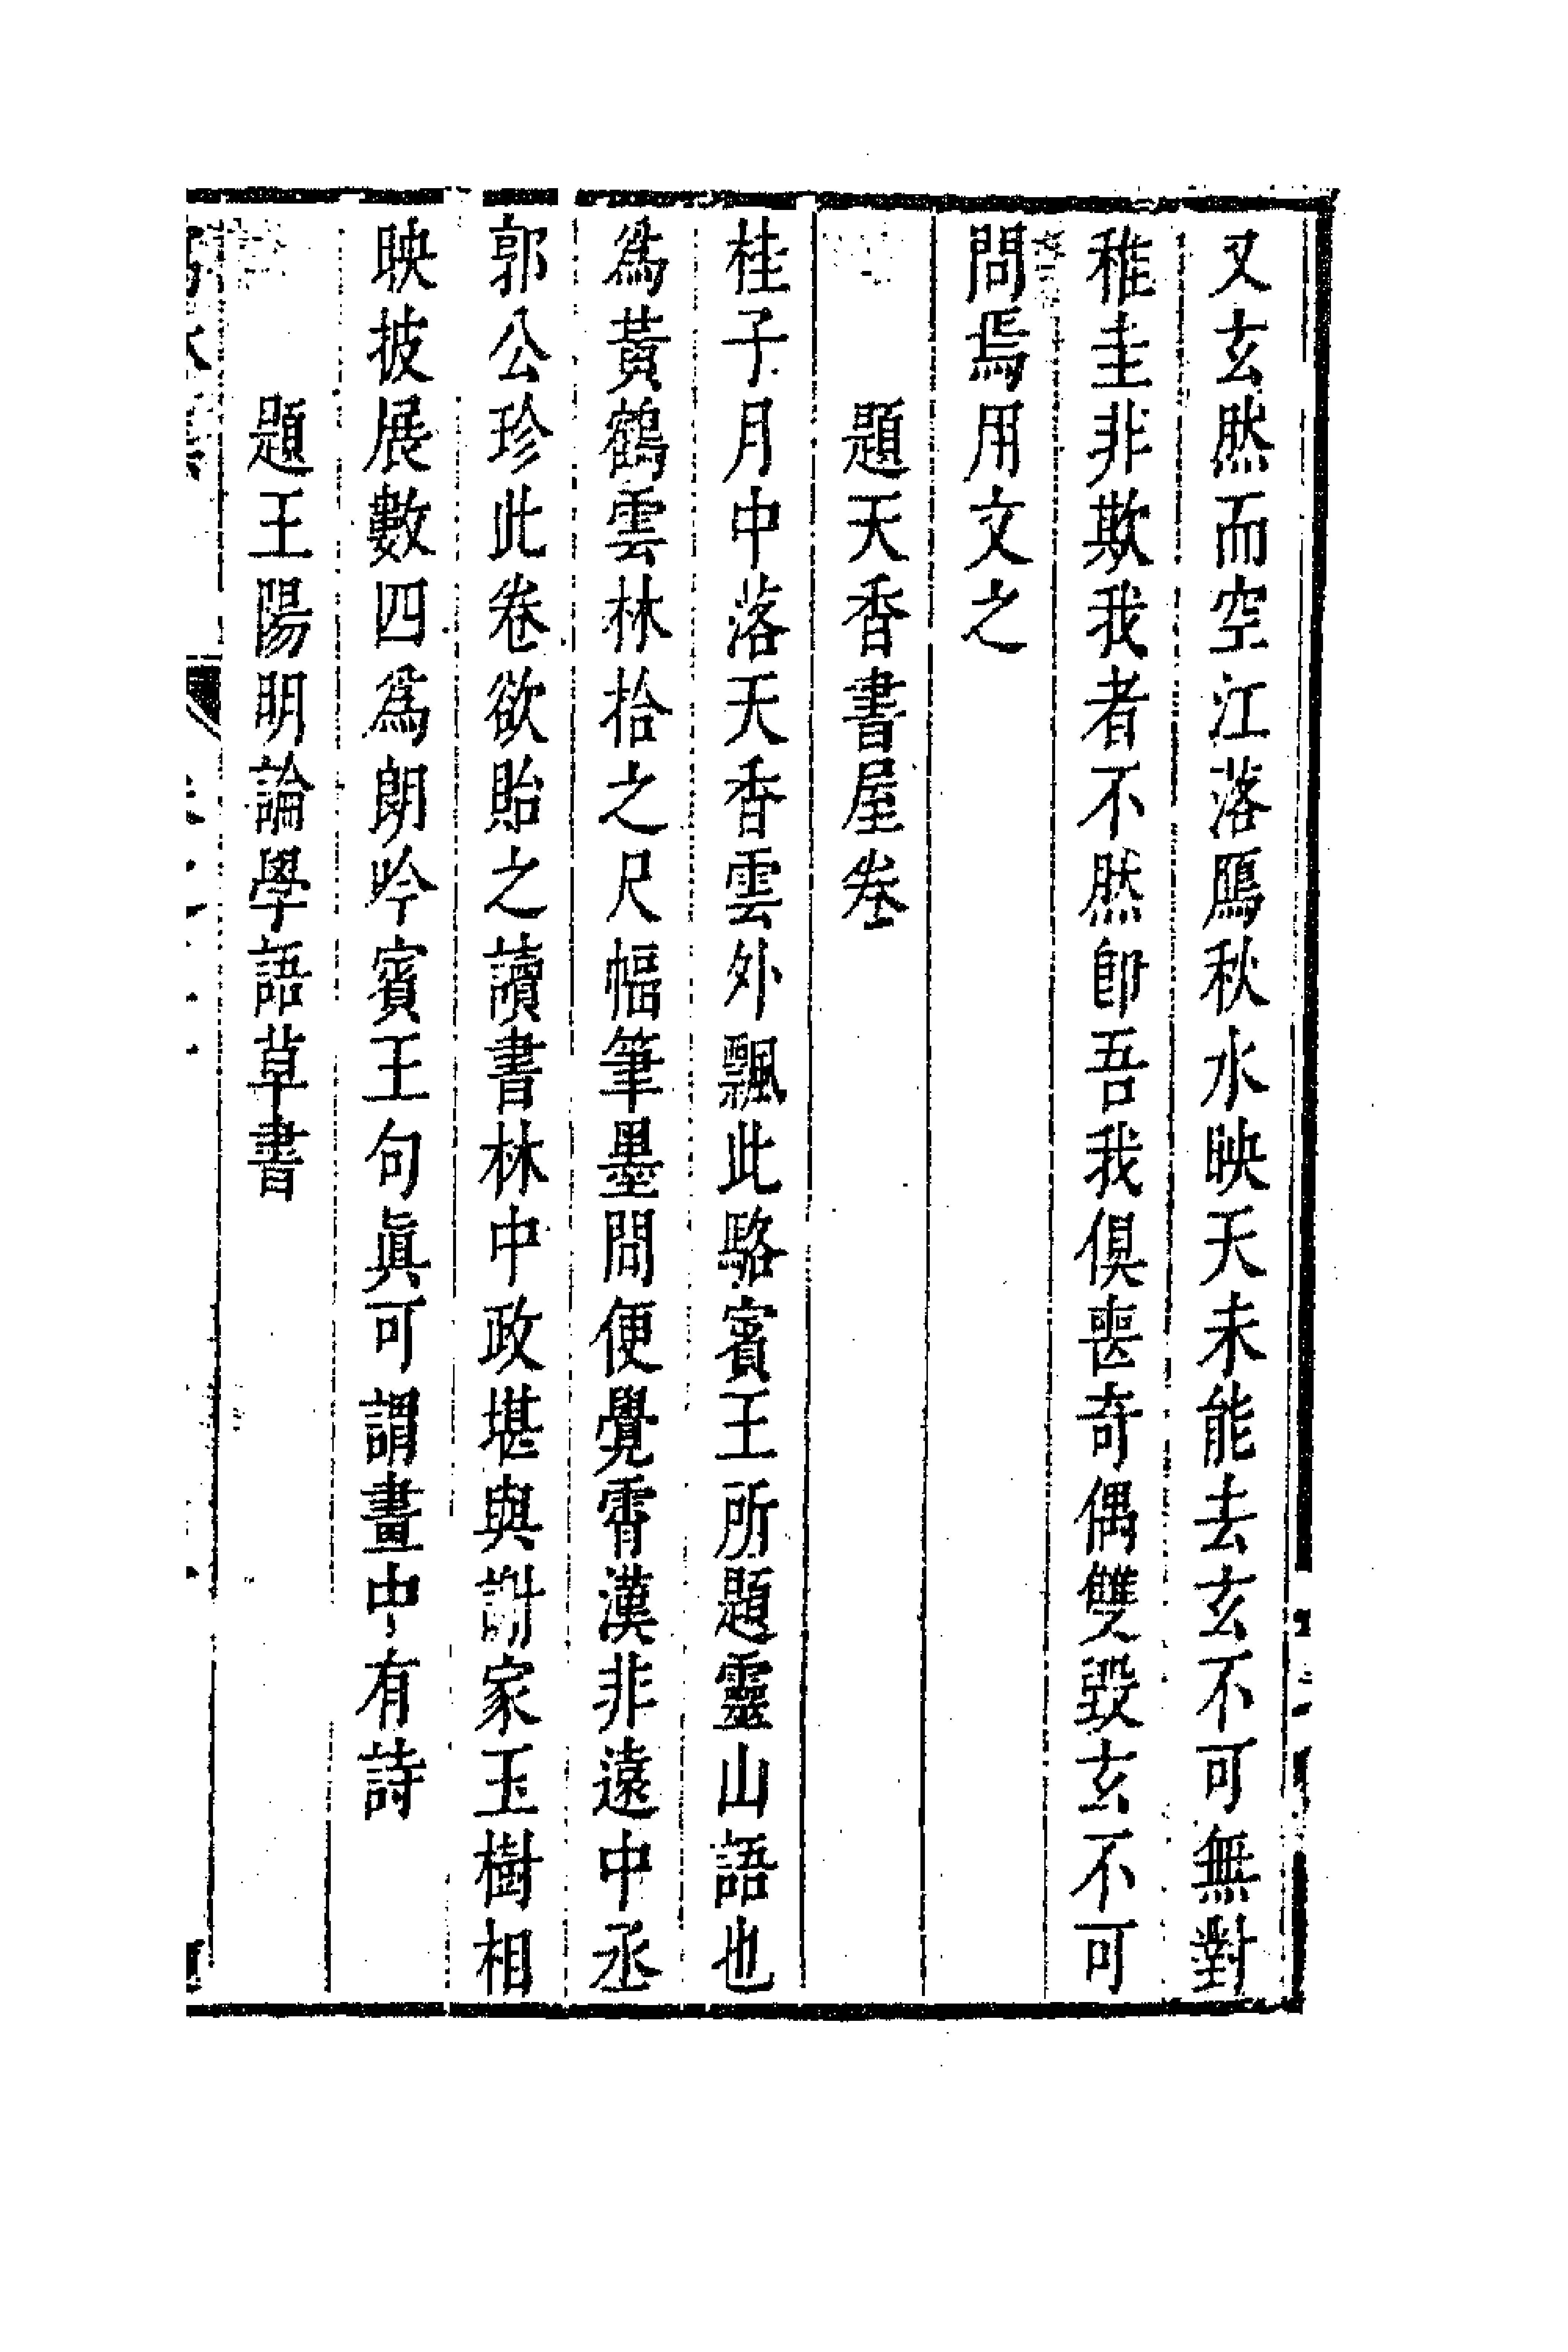 又玄然而空江落鴈秋水映天未能去玄不可無對
稚圭非欺我者不然卽吾我俱喪奇偶雙毀玄不可
問焉用文之
題天香書屋卷
桂子月中落天香雲外飄此駱賓王所題靈山語也
爲黃鶴雲林拾之尺幅筆墨間便覺霄漢非遠中丞
郭公珍此卷欲貽之讀書林中政堪與謝家玉樹相
映披展數四爲朗吟賓王句眞可謂畫中有詩
題王陽明論學語草書